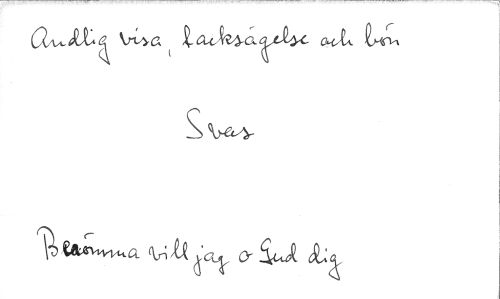 Andlig visa, tacksägelse och bön
Svas
Berömma vill jag o Gud dig